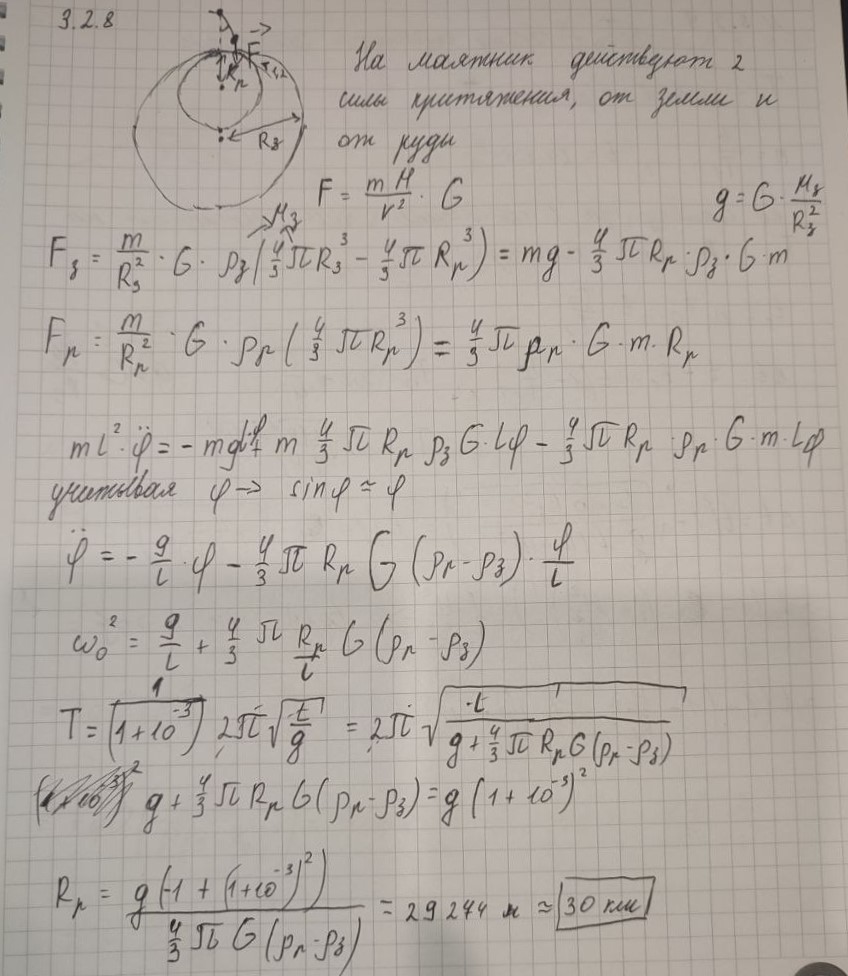 3.2.8
F
Rр
Rз
На маятник действуют 2
силы притяжения, от земли и
от руды
F = mM/r² · G
g = G · Mз/Rз²
Mз
Fз = m/Rз² · G · ρз(4/3 πRз³ - 4/3 π Rр³) = mg - 4/3 π Rр · ρз · G · m
Fр = m/Rр² · G · ρр (4/3 π Rр³) = 4/3 π ρр · G · m · Rр
ml² · φ̈ = - mglφ + m 4/3 π Rр ρз G · Lφ - 4/3 π Rр ρр · G · m · Lφ
учитывая φ → sinφ ≈ φ
φ̈ = - g/l · φ - 4/3 π Rр G (ρр - ρз) · φ/l
ω₀² = g/l + 4/3 π Rр/l G (ρр - ρз)
T = 1/(1+10⁻³) 2π √(l/g) = 2π √(l/(g + 4/3 π Rр G (ρр - ρз)))
g + 4/3 π Rр G (ρр - ρз) = g (1 + 10⁻³)²
Rр = g(-1 + (1+10⁻³)²)/(4/3 π G (ρр - ρз)) = 29244 м ≈ 30 км